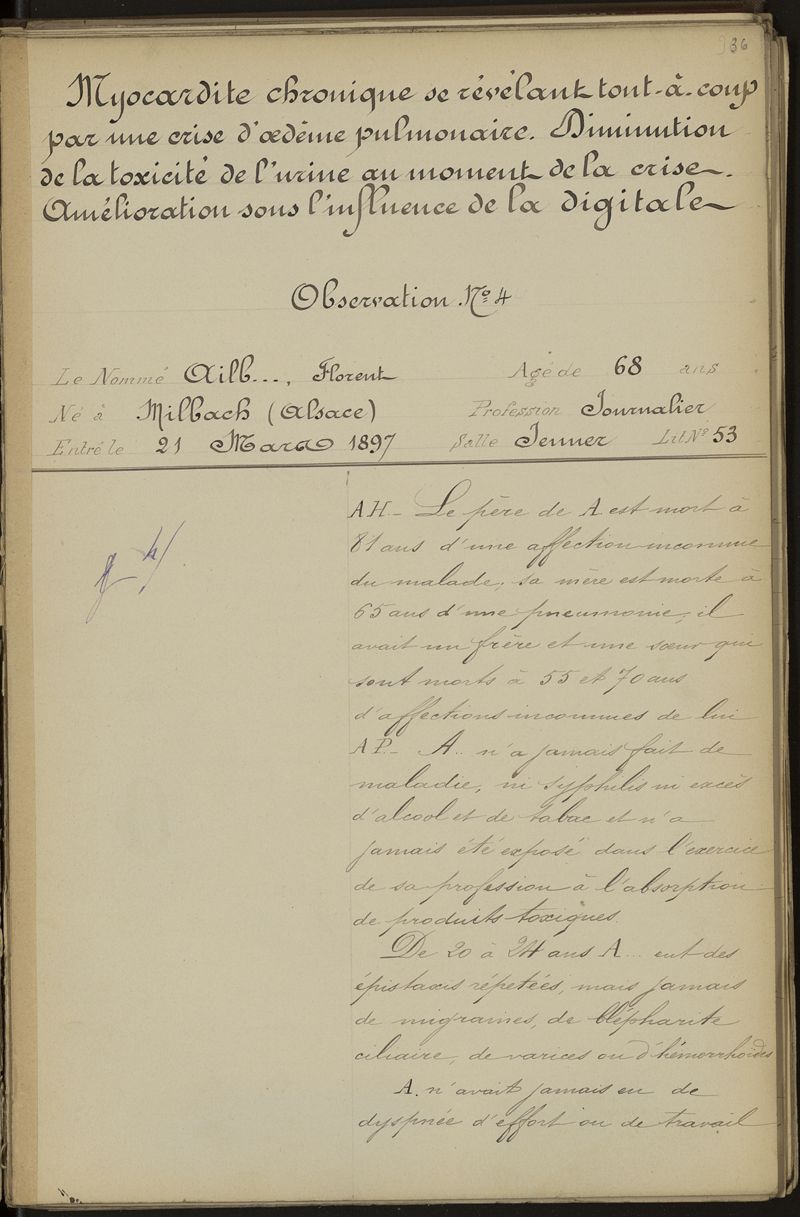 36
Myocardite chronique se révélant tout-à-coup
par une crise d'œdème pulmonaire. Diminution
de la toxicité de l'urine au moment de la crise.
Amélioration sous l'influence de la digitale
Observation Nº 4
Le Nommé Ailb..., Florent Agé de 68 ans
Né à Milbach (Alsace) Profession Journalier
Entré le 21 Mars 1897 Salle Jenner Lit Nº 53
AH- Le père de A est mort à
81 ans d'une affection inconnue
du malade; sa mère est morte à
65 ans d'une pneumonie; il
avait un frère et une sœur qui
sont morts à 55 et 70 ans
d'affections inconnues de lui
AP- A.. n'a jamais fait de
maladie, ni syphilis ni excès
d'alcool et de tabac et n'a
jamais été exposé dans l'exercice
de sa profession à l'absorption
de produits toxiques.
De 20 à 24 ans A... eut des
épistaxis répetées, mais jamais
de migraines, de blépharite
ciliaire, de varices ou d'hémorrhoïdes
A. n'avait jamais eu de
dyspnée d'effort ou de travail